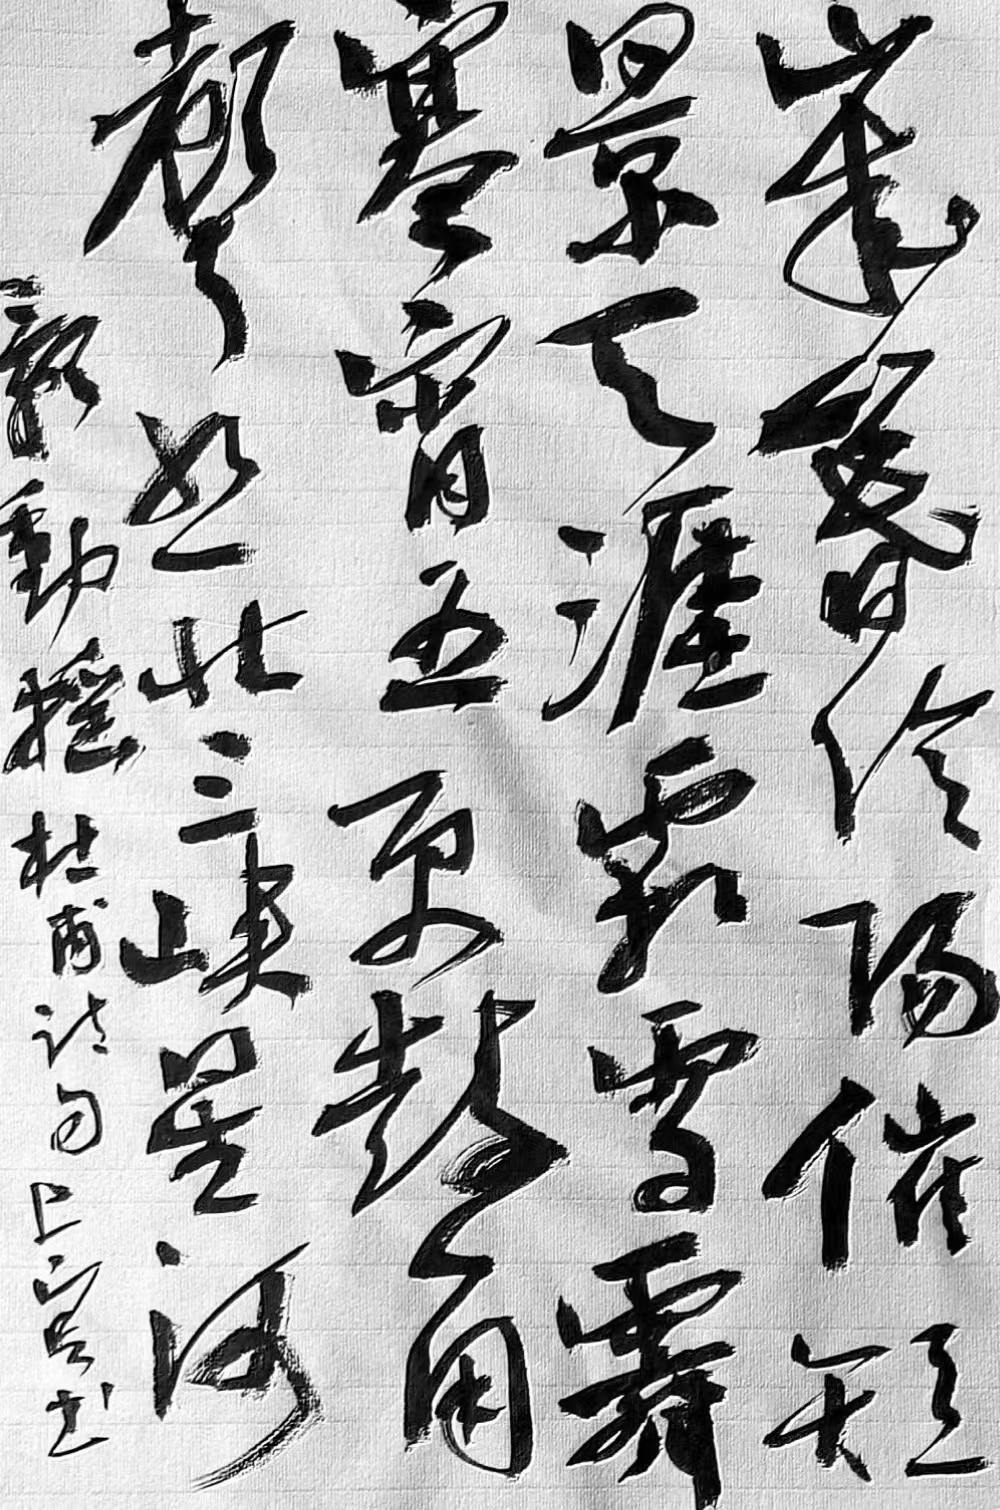 歲暮陰陽催短
景天涯霜雪霽
寒宵五更鼓角
聲悲壯三峽星河
影動搖 杜甫诗句 上书